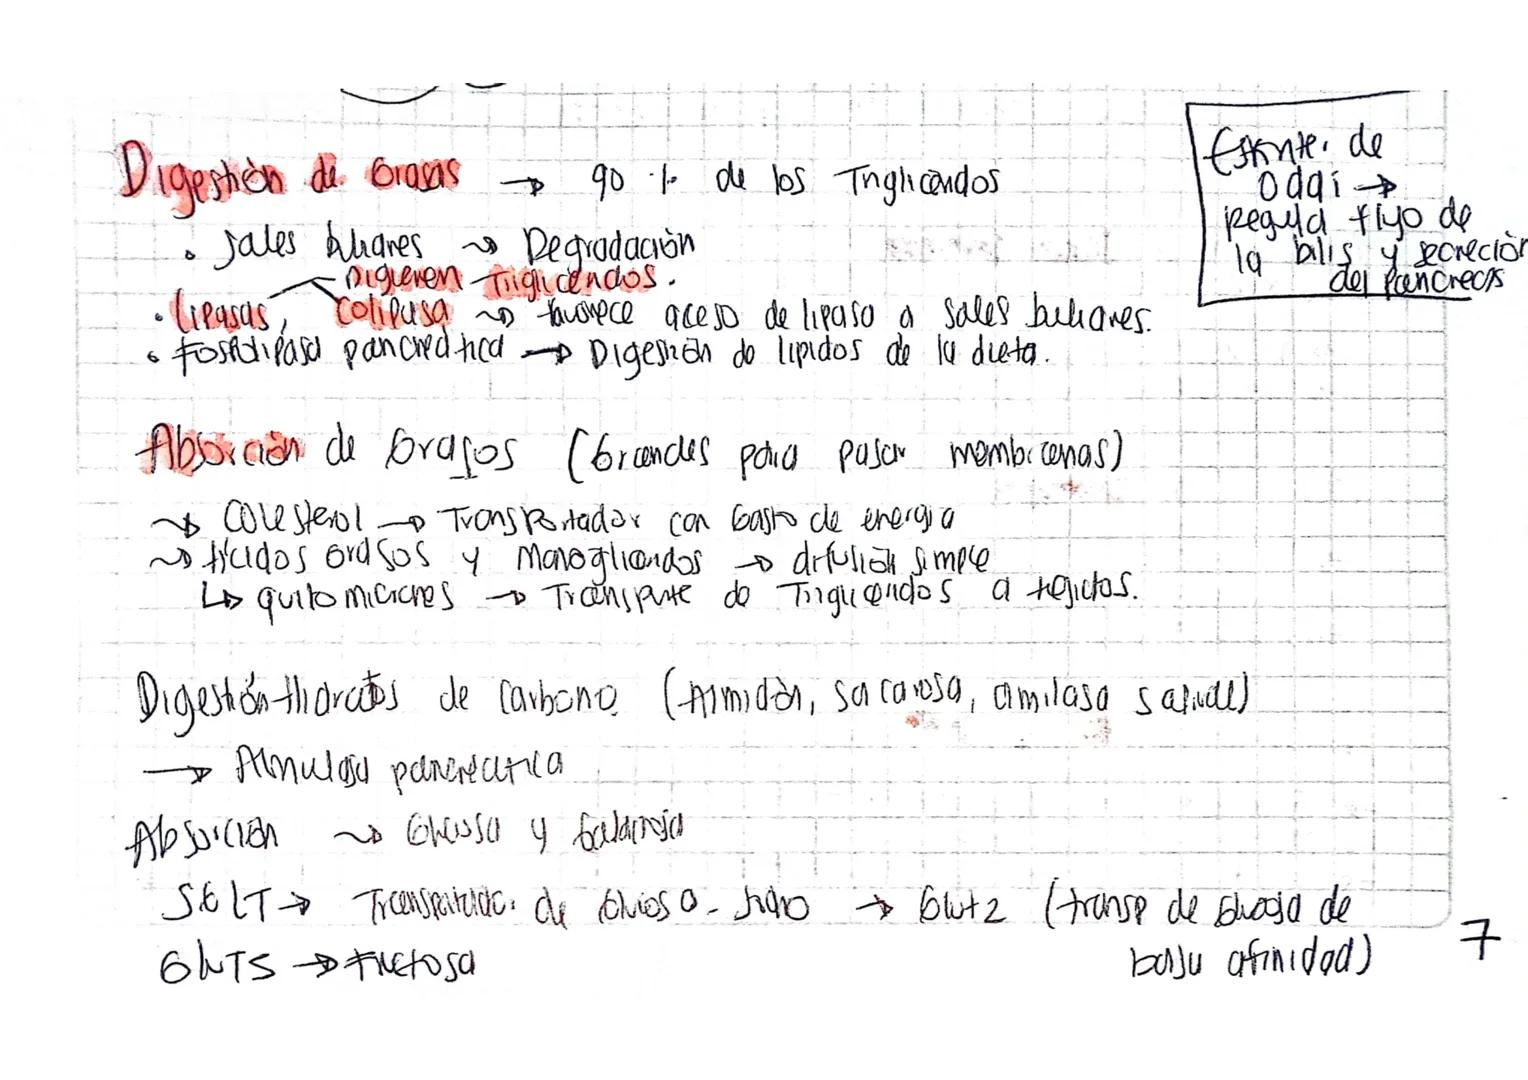 Digestión de Grasas → 90 % de los Trigliceridos
• Sales biliares → Degradación
Digieren Trigliceridos.
• Lipasas, Colipasa → favorece acceso de lipasa a sales biliares.
• Fosfolipasa pancreatica → Digestión de lipidos de la dieta.
Esfinter de
Oddi →
Regula flujo de
la bilis y secreción
del Pancreas
Absorción de Grasas (Grandes para pasar membranas)
→ Colesterol → Transportador con Gasto de energia
→ Ácidos Grasos y Monogliceridos → difusión simple
↳ quilomicrones → Transporte de Trigliceridos a tejidos.
Digestión Hidratos de Carbono (Almidón, Sacarosa, amilasa salival)
→ Amilasa pancreatica
Absorción → Glucosa y Galactosa
SGLT → Transportador de Glucosa - Sodio → Glut 2 (transp de glucosa de
baja afinidad)
GLUT5 → Fructosa
7